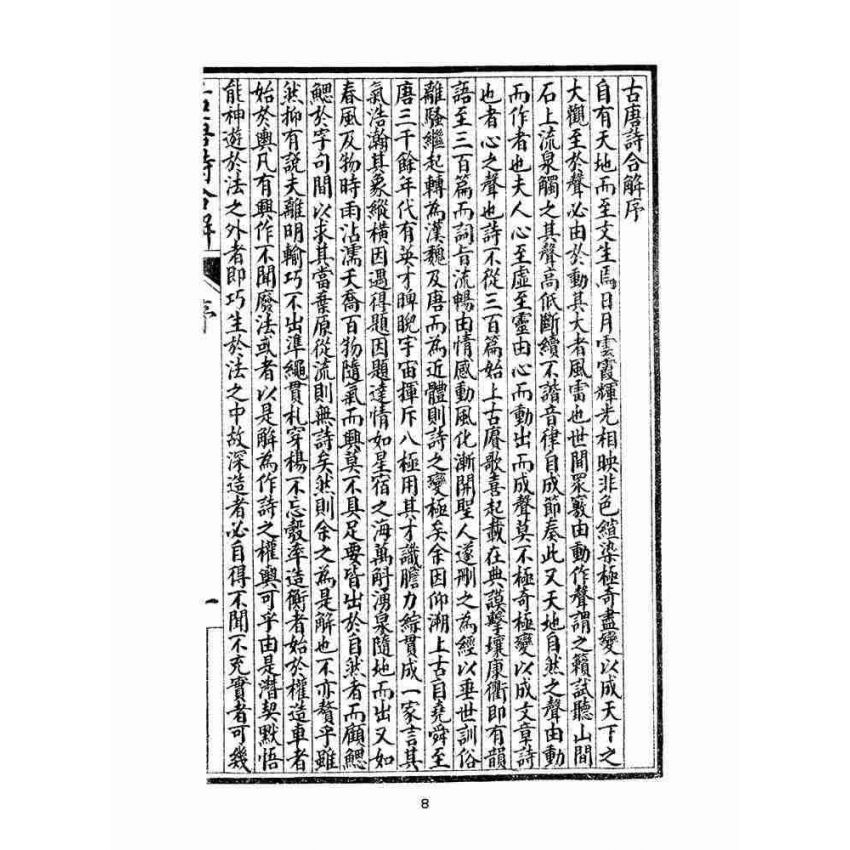 古唐詩合解序
自有天地而至文生焉日月雲霞輝光相映非色繪染極奇盡變以成天下之
大觀至於聲必由於動其大者風雷也世間眾竅由動作聲謂之籟試聽山間
石上流泉觸之其聲高低斷續不諧音律自成節奏此又天地自然之聲由動
而作者也夫人心至虛至靈由心而動出而成聲莫不極奇極變以成文章詩
也者心之聲也詩不從三百篇始上古賡歌喜起載在典謨擊壤康衢即有韻
語至三百篇而詞旨流暢由情感動風化漸開聖人遂刪之為經以垂世訓俗
離騷繼起轉為漢魏及唐而為近體則詩之變極矣余因仰溯上古自堯舜至
唐三千餘年代有英才睥睨宇宙揮斥八極用其才識膽力綜貫成一家言其
氣浩瀚其象縱橫因遇得題因題達情如星宿之海萬斛湧泉隨地而出又如
春風及物時雨沾濡夭喬百物隨氣而興莫不具足要皆出於自然者而顧鰓
鰓於字句間以求其當棄原從流則無詩矣然則余之為是解也不亦贅乎雖
然抑有說夫離明輸巧不出準繩貫札穿楊不忘彀率造衡者始於權造車者
始於輿凡有興作不聞廢法或者以是解為作詩之權輿可乎由是潛契默悟
能神遊於法之外者即巧生於法之中故深造者必自得不聞不充實者可幾
古唐詩合解
序
一
8